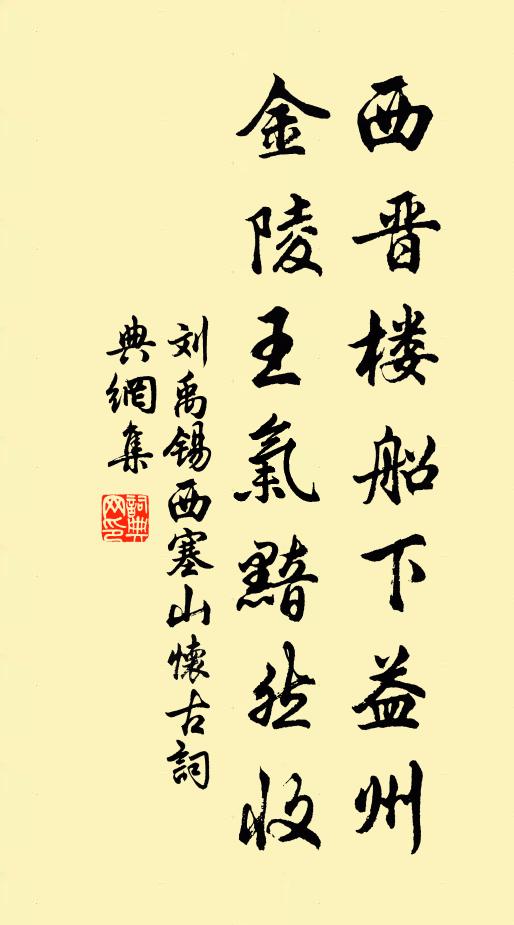 西晋楼船下益州
金陵王氣黯然收
刘禹锡西塞山懷古詞
典網集
詞典网印